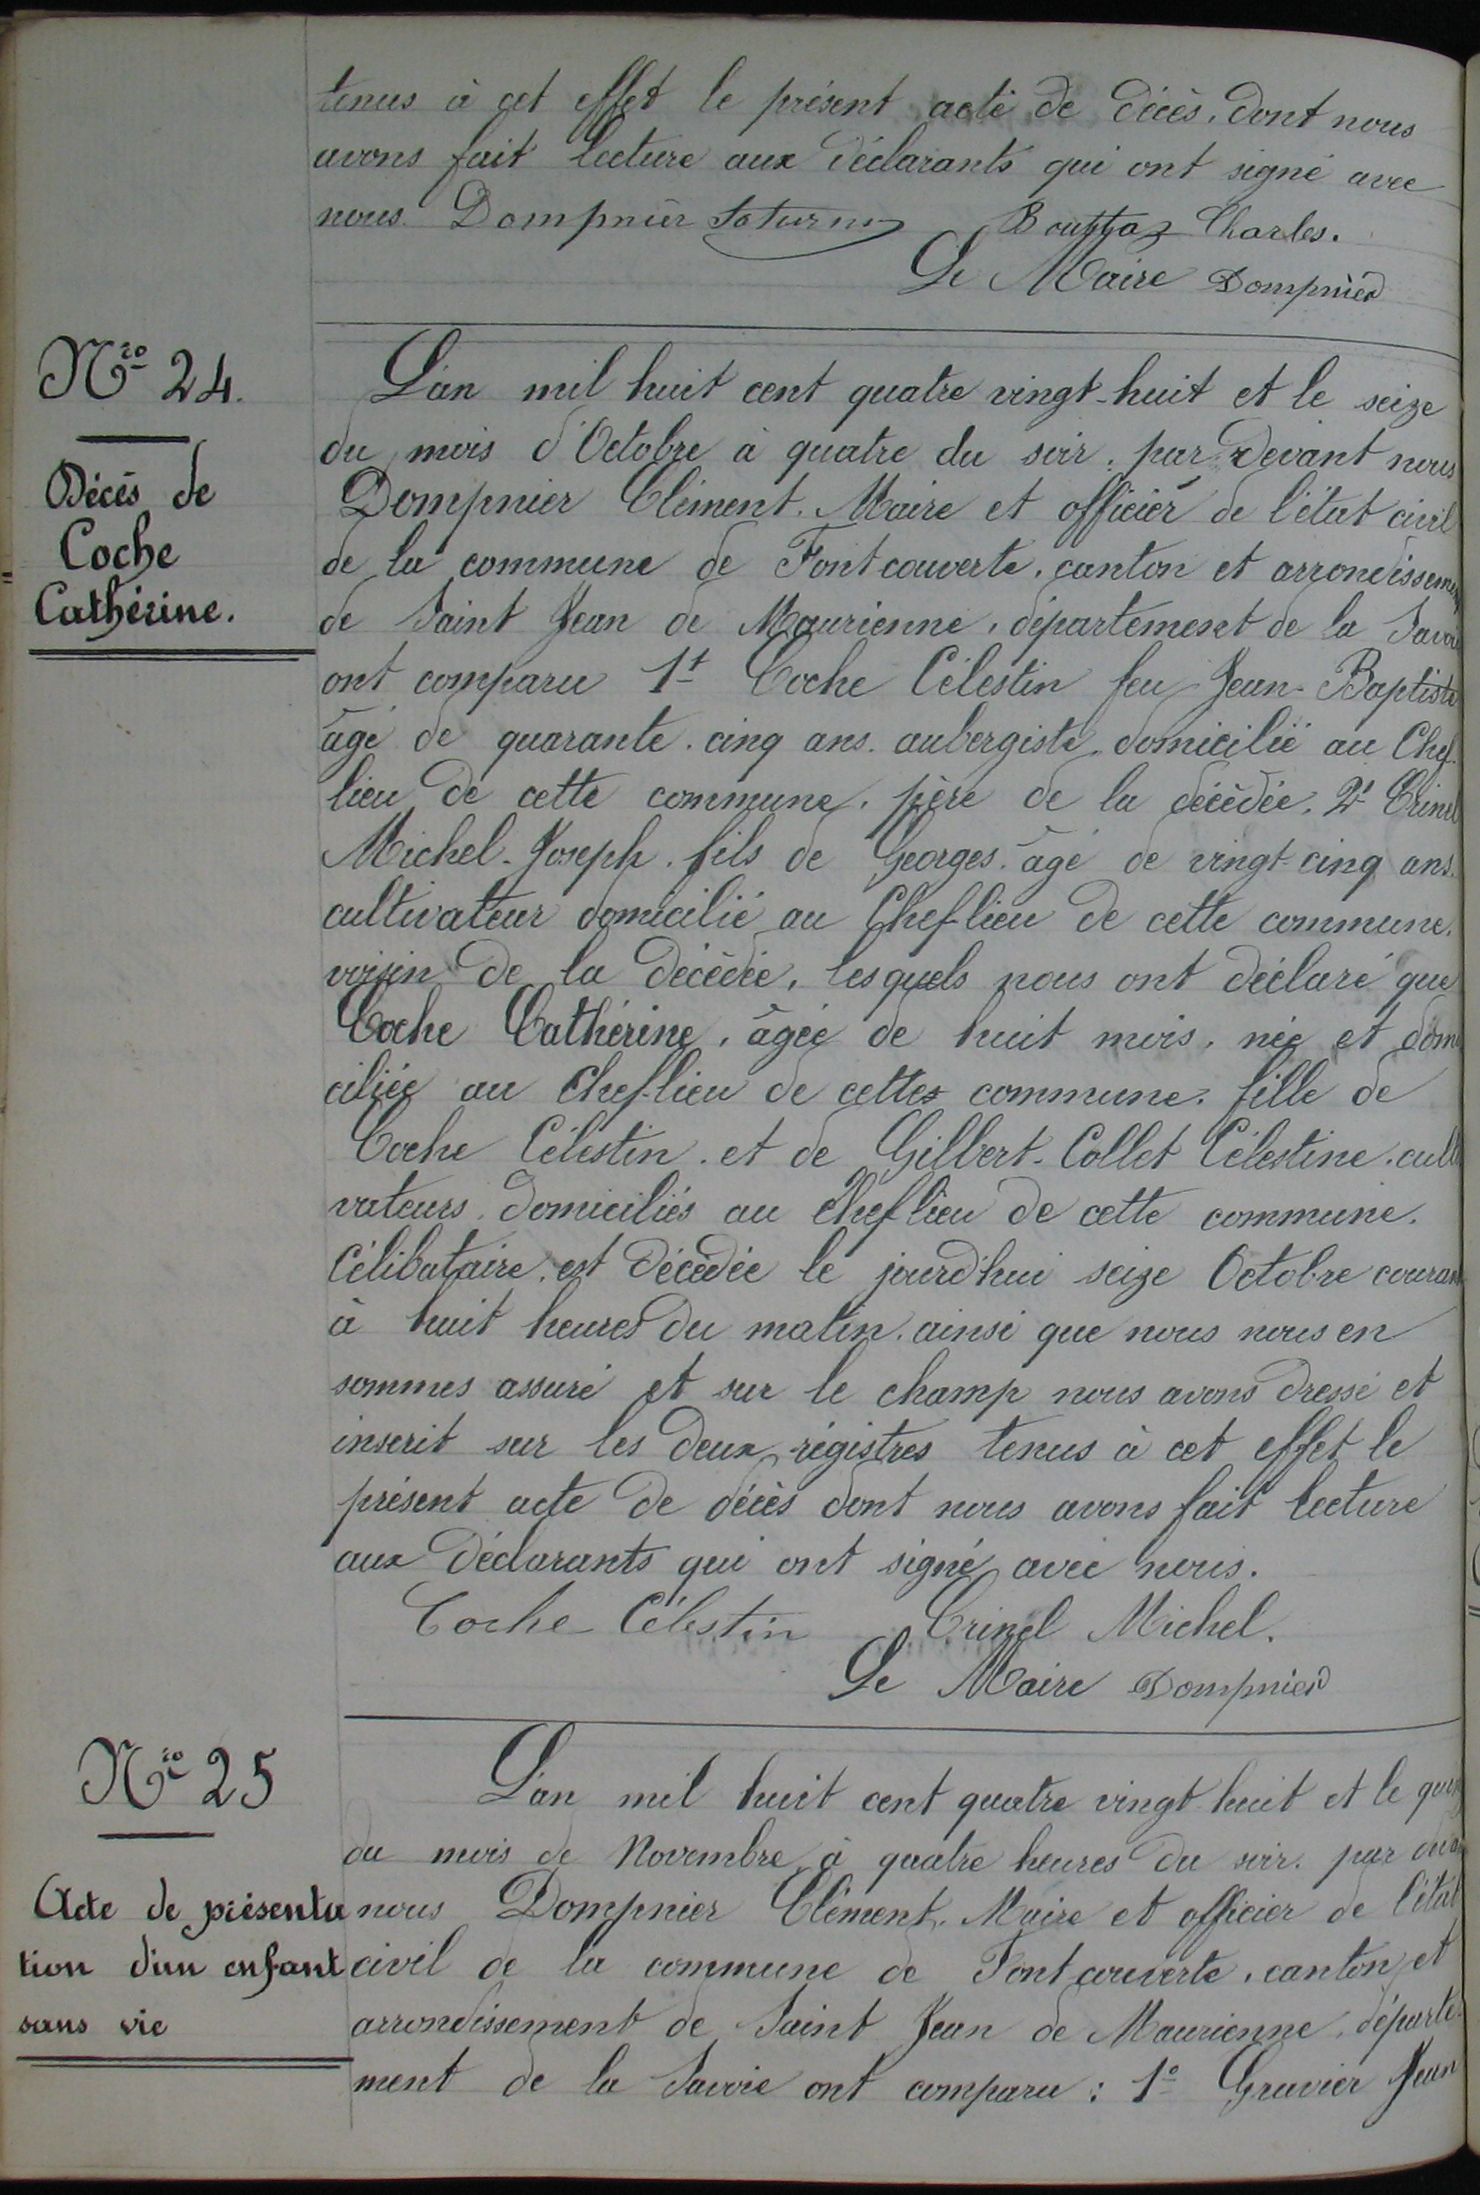 tenus à cet effet le présent acte de décès, dont nous
avons fait lecture aux déclarants qui ont signé avec
nous. Dompnier Saturnin Bouttaz Charles.
Le Maire Dompnier
Nro 24.
Décès de
Coche
Cathérine.
L'an mil huit cent quatre vingt-huit et le seize
du mois d'Octobre à quatre du soir, par devant nous
Dompnier Clément, Maire et officier de l'état civil
de la commune de Fontcouverte, canton et arrondissement
de Saint Jean de Maurienne, département de la Savoie
ont comparu 1t Coche Célestin feu Jean-Baptiste
âgé de quarante-cinq ans, aubergiste, domicilié au Chef-
lieu de cette commune, père de la décédée, 2t Crinel
Michel-Joseph, fils de Georges, âgé de vingt-cinq ans,
cultivateur domicilié au Chef-lieu de cette commune,
voisin de la décédée, lesquels nous ont déclaré que
Coche Cathérine, âgée de huit mois, née et domi
ciliée au chef-lieu de cette commune, fille de
Coche Célestin et de Gilbert-Collet Célestine, culti
vateurs, domiciliés au chef lieu de cette commune.
Célibataire, est décédée le jourd'hui seize Octobre courant
à huit heures du matin, ainsi que nous nous en
sommes assuré et sur le champ nous avons dressé et
inscrit sur les deux régistres tenus à cet effet le
présent acte de décès dont nous avons fait lecture
aux déclarants qui ont signé avec nous.
Coche Célestin Crinel Michel.
Le Maire Dompnier
Nro 25
Acte de présenta
tion d'un enfant
sans vie
L'an mil huit cent quatre vingt huit et le
du mois de Novembre à quatre heures du soir, par devant
nous Dompnier Clément, Maire et officier de l'état
civil de la commune de Fontcouverte, canton et
arrondissement de Saint Jean de Maurienne, départe-
ment de la Savoie ont comparu : 1o Gravier Jean